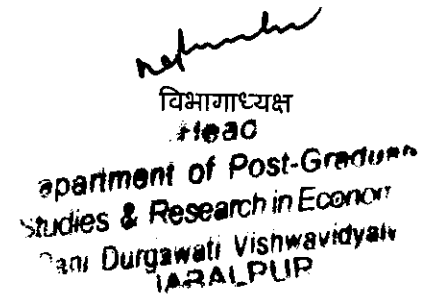 विभागाध्यक्ष
Head
epartment of Post-Gradua
Studies & Research in Econom
Rani Durgawati Vishwavidyala
JABALPUR